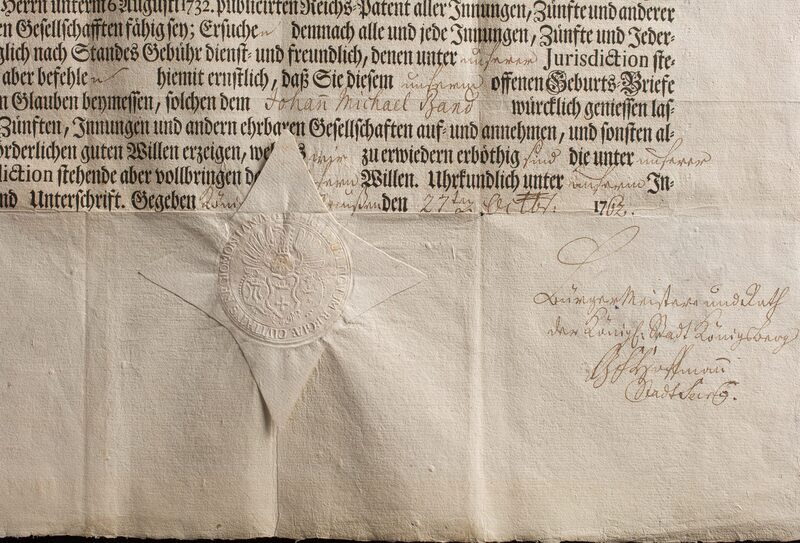 Herrn unterm 6 Augusti 1732. publicirten Reichs-Patent aller Innungen, Zünfte und anderer
en Gesellschafften fähig sey; Ersuchen demnach alle und jede Innungen, Zünfte und Jeder-
glich nach Standes Gebühr dienst- und freundlich, denen unter unserer Jurisdiction ste-
aber befehlen hiemit ernstlich, daß Sie diesem unserm offenen Geburts-Briefe
n Glauben beymessen, solchen dem Johañ Michael würcklich geniessen las-
Zünften, Innungen und andern ehrbaren Gesellschaften auf- und annehmen, und sonsten al-
örderlichen guten Willen erzeigen, wir zu erwiedern erböthig sind die unter unserer
diction stehende aber vollbringen Willen. Uhrkundlich unter unserm In-
nd Unterschrift. Gegeben den 27ten Octbr. 1762.
BürgerMeistere und Rath
der Königl. Stadt Königsberg
Hoffmañ
StadtSecr.